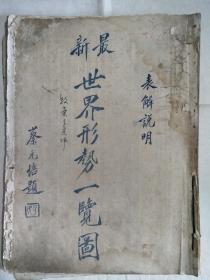 最新
世界形勢一覽圖
表解說明
蔡元培題